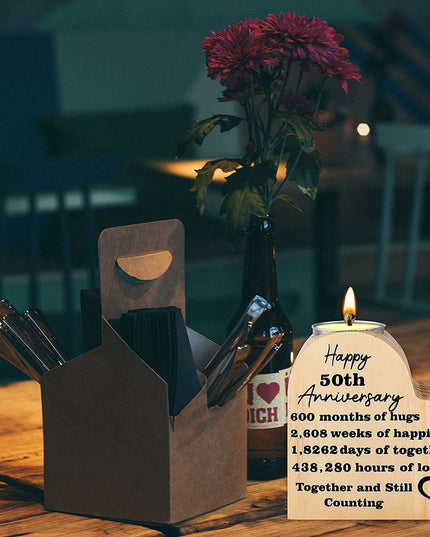 DICH
Happy
50th
Anniversary
600 months of hugs
2,608 weeks of happi
1,8262 days of toget
438,280 hours of lo
Together and Still
Counting